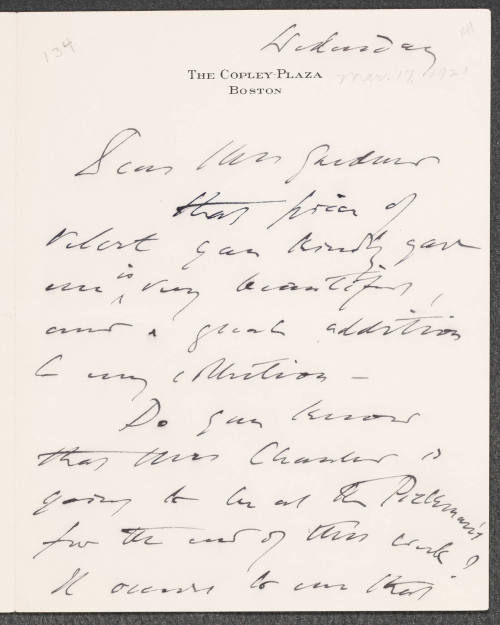 134
Wednesday
THE COPLEY-PLAZA
BOSTON
Mar. 17, 1921
Dear Mrs Gardner
that piece of
velvet you kindly gave
me is very beautiful,
and a great addition
to my collection –
Do you know
that Mrs Chanler is
going to be at the Pickman's
for the end of this week?
It occurs to me that